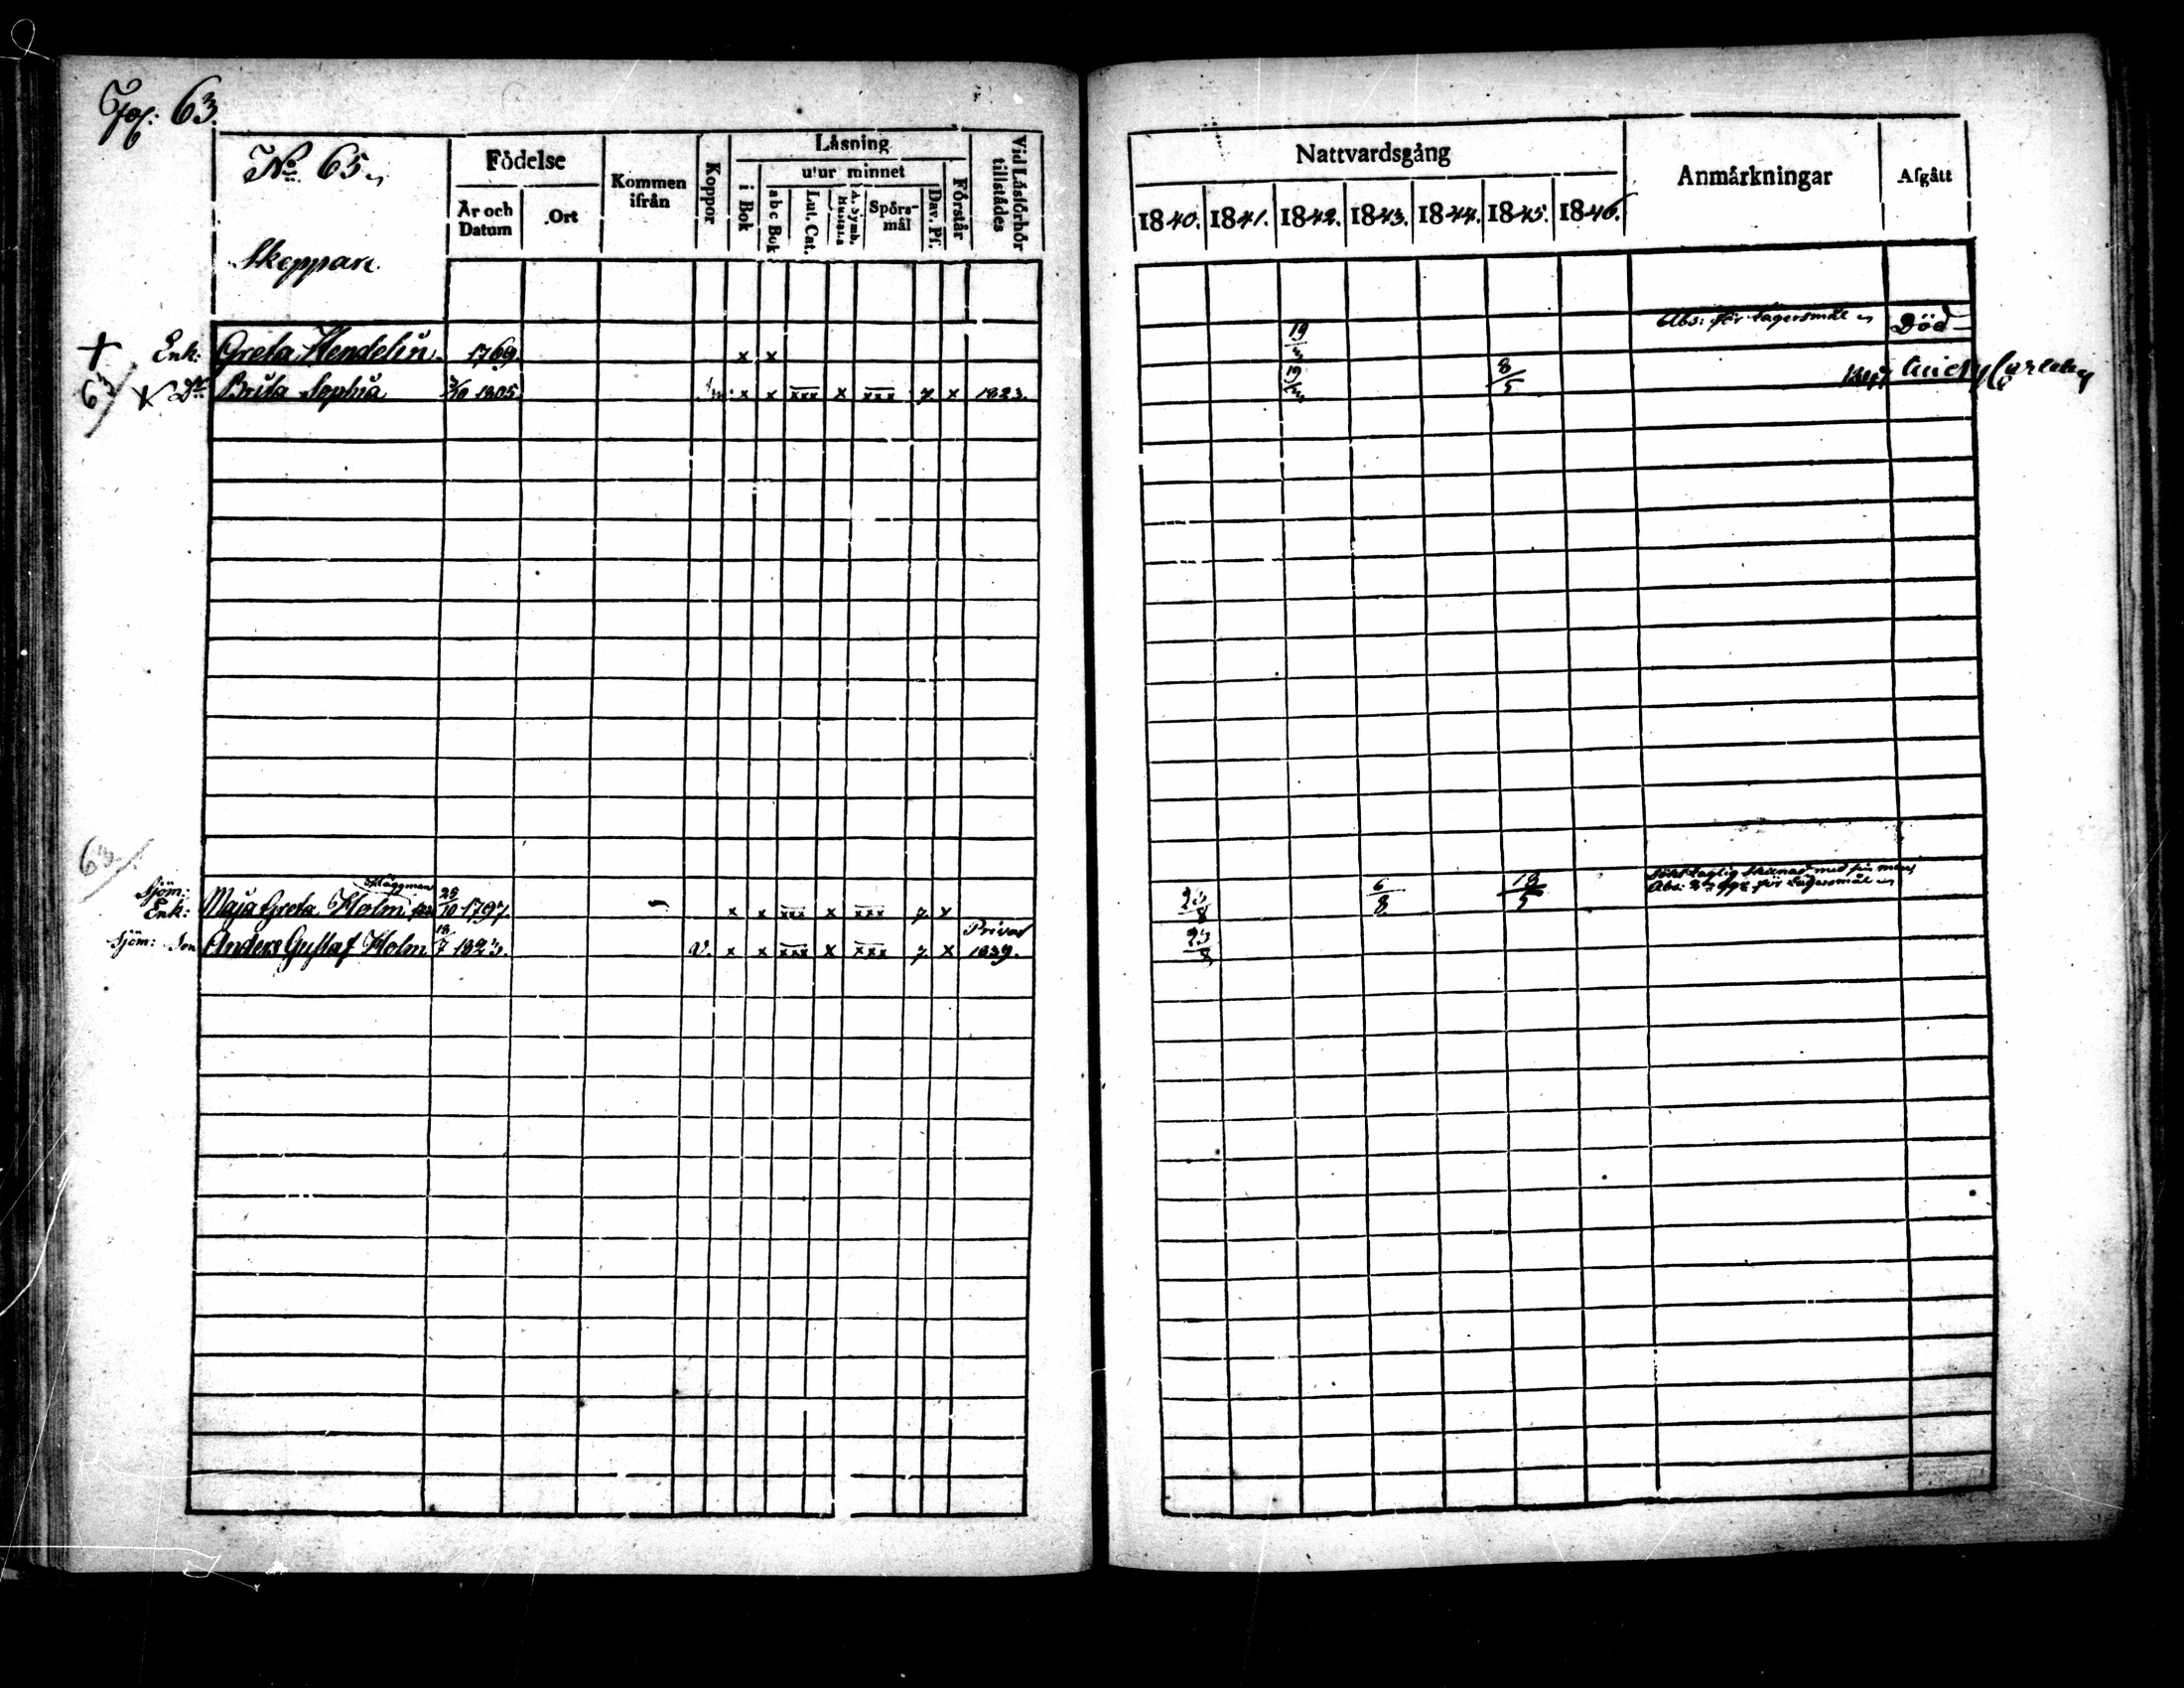 Fol: 63.
No 65.
Skeppare
Födelse
År och Datum
Ort
Kommen ifrån
Koppor
Läsning
i Bok
utur minnet
abc Bok
Lut. Cat.
A. Symb. Hustafla
Spörsmål
Dav. Ps.
Förstår
Vid Läsförhör tillstådes
Nattvardsgång
1840. 1841. 1842. 1843. 1844. 1845. 1846.
Anmärkningar
Afgått
+ Enk: Greta Wendelin 1769 x x 19 Abs: för Lägersmål Död
63 x Dr Brita Sophia 1805 x x xxx x xxx 7 x 1823. 19 8/5
63
Sjöm: Enk: Maja Greta Holm 25/10 1797 x x xxx x xxx 7 x 23/8 6/8 18/5
Abs: för Lägersmål
Sjöm: Son Anders Gustaf Holm 18/7 1823. v. x x xxx x xxx 7 x Privat 1839. 23/8